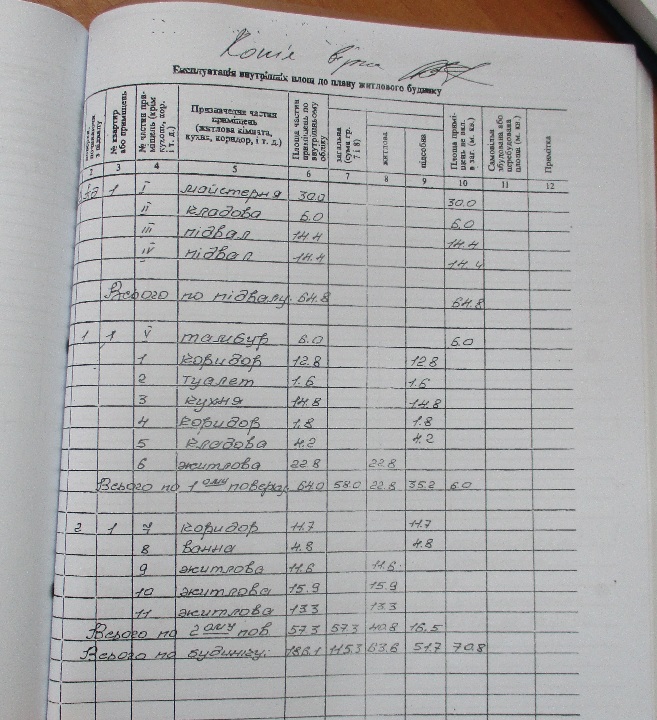 Копія вірна
Експлуатація внутрішніх площ до плану житлового будинку
№ квартир або приміщень
№ частин приміщень (крім сухош, кор. і т. д.)
Призначення частин приміщень (житлова кімната, кухня, коридор, і т. д.)
Площа частин приміщень по внутрішньому обліку
загальна (сума гр. 7 і 8)
житлова
підсобна
Площа приміщень не вкл. в заг. (м. кв.)
Самовільн збудована або перебудована площа (м. кв.)
Примітка
2 3 4 5 6 7 8 9 10 11 12
1 I майстерня 30.0 30.0
II кладова 6.0 6.0
III підвал 14.4 14.4
IV підвал 14.4 14.4
Всього по підвалу: 64.8 64.8
1 1 V тамбур 6.0 6.0
1 коридор 12.8 12.8
2 туалет 1.6 1.6
3 кухня 14.8 14.8
4 коридор 1.8 1.8
5 кладова 4.2 4.2
6 житлова 22.8 22.8
Всього по 1 ому поверху: 64.0 58.0 22.8 35.2 6.0
2 1 7 коридор 11.7 11.7
8 ванна 4.8 4.8
9 житлова 11.6 11.6
10 житлова 15.9 15.9
11 житлова 13.3 13.3
Всього по 2 ому пов 57.3 57.3 40.8 16.5
Всього по будинку: 186.1 115.3 63.6 51.7 70.8